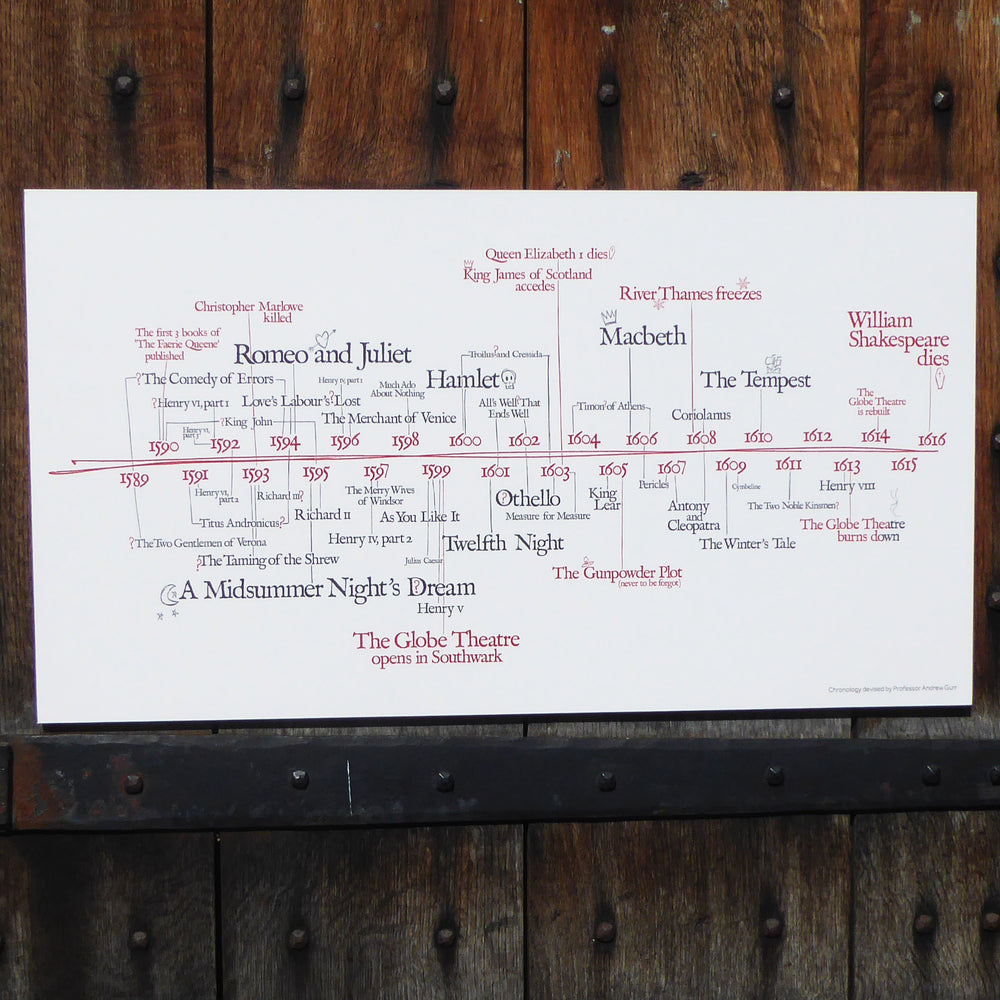 Queen Elizabeth I dies
King James of Scotland
accedes
River Thames freezes
Christopher Marlowe
killed
William
Shakespeare
dies
The first 3 books of
'The Faerie Queene'
published
Romeo and Juliet
Macbeth
Troilus? and Cressida
?The Comedy of Errors
Henry IV, part 1
Much Ado
About Nothing
Hamlet
The Tempest
?Henry VI, part 1
Love's Labour's? Lost
All's Well? That
Ends Well
Timon? of Athens
The
Globe Theatre
is rebuilt
?King John
The Merchant of Venice
Coriolanus
Henry VI,
part 3
1590 1592 1594 1596 1598 1600 1602 1604 1606 1608 1610 1612 1614 1616
1589 1591 1593 1595 1597 1599 1601 1603 1605 1607 1609 1611 1613 1615
Henry VI,
part 2
Richard III?
The Merry Wives
of Windsor
Othello
King
Lear
Pericles
Cymbeline
Henry VIII
Titus Andronicus?
Richard II
As You Like It
Measure for Measure
Antony
and
Cleopatra
The Two Noble Kinsmen?
The Globe Theatre
burns down
?The Two Gentlemen of Verona
Henry IV, part 2
Twelfth Night
The Winter's Tale
?The Taming of the Shrew
Julius Caesar
The Gunpowder Plot
(never to be forgot)
A Midsummer Night's Dream
?
Henry V
The Globe Theatre
opens in Southwark
Chronology devised by Professor Andrew Gurr